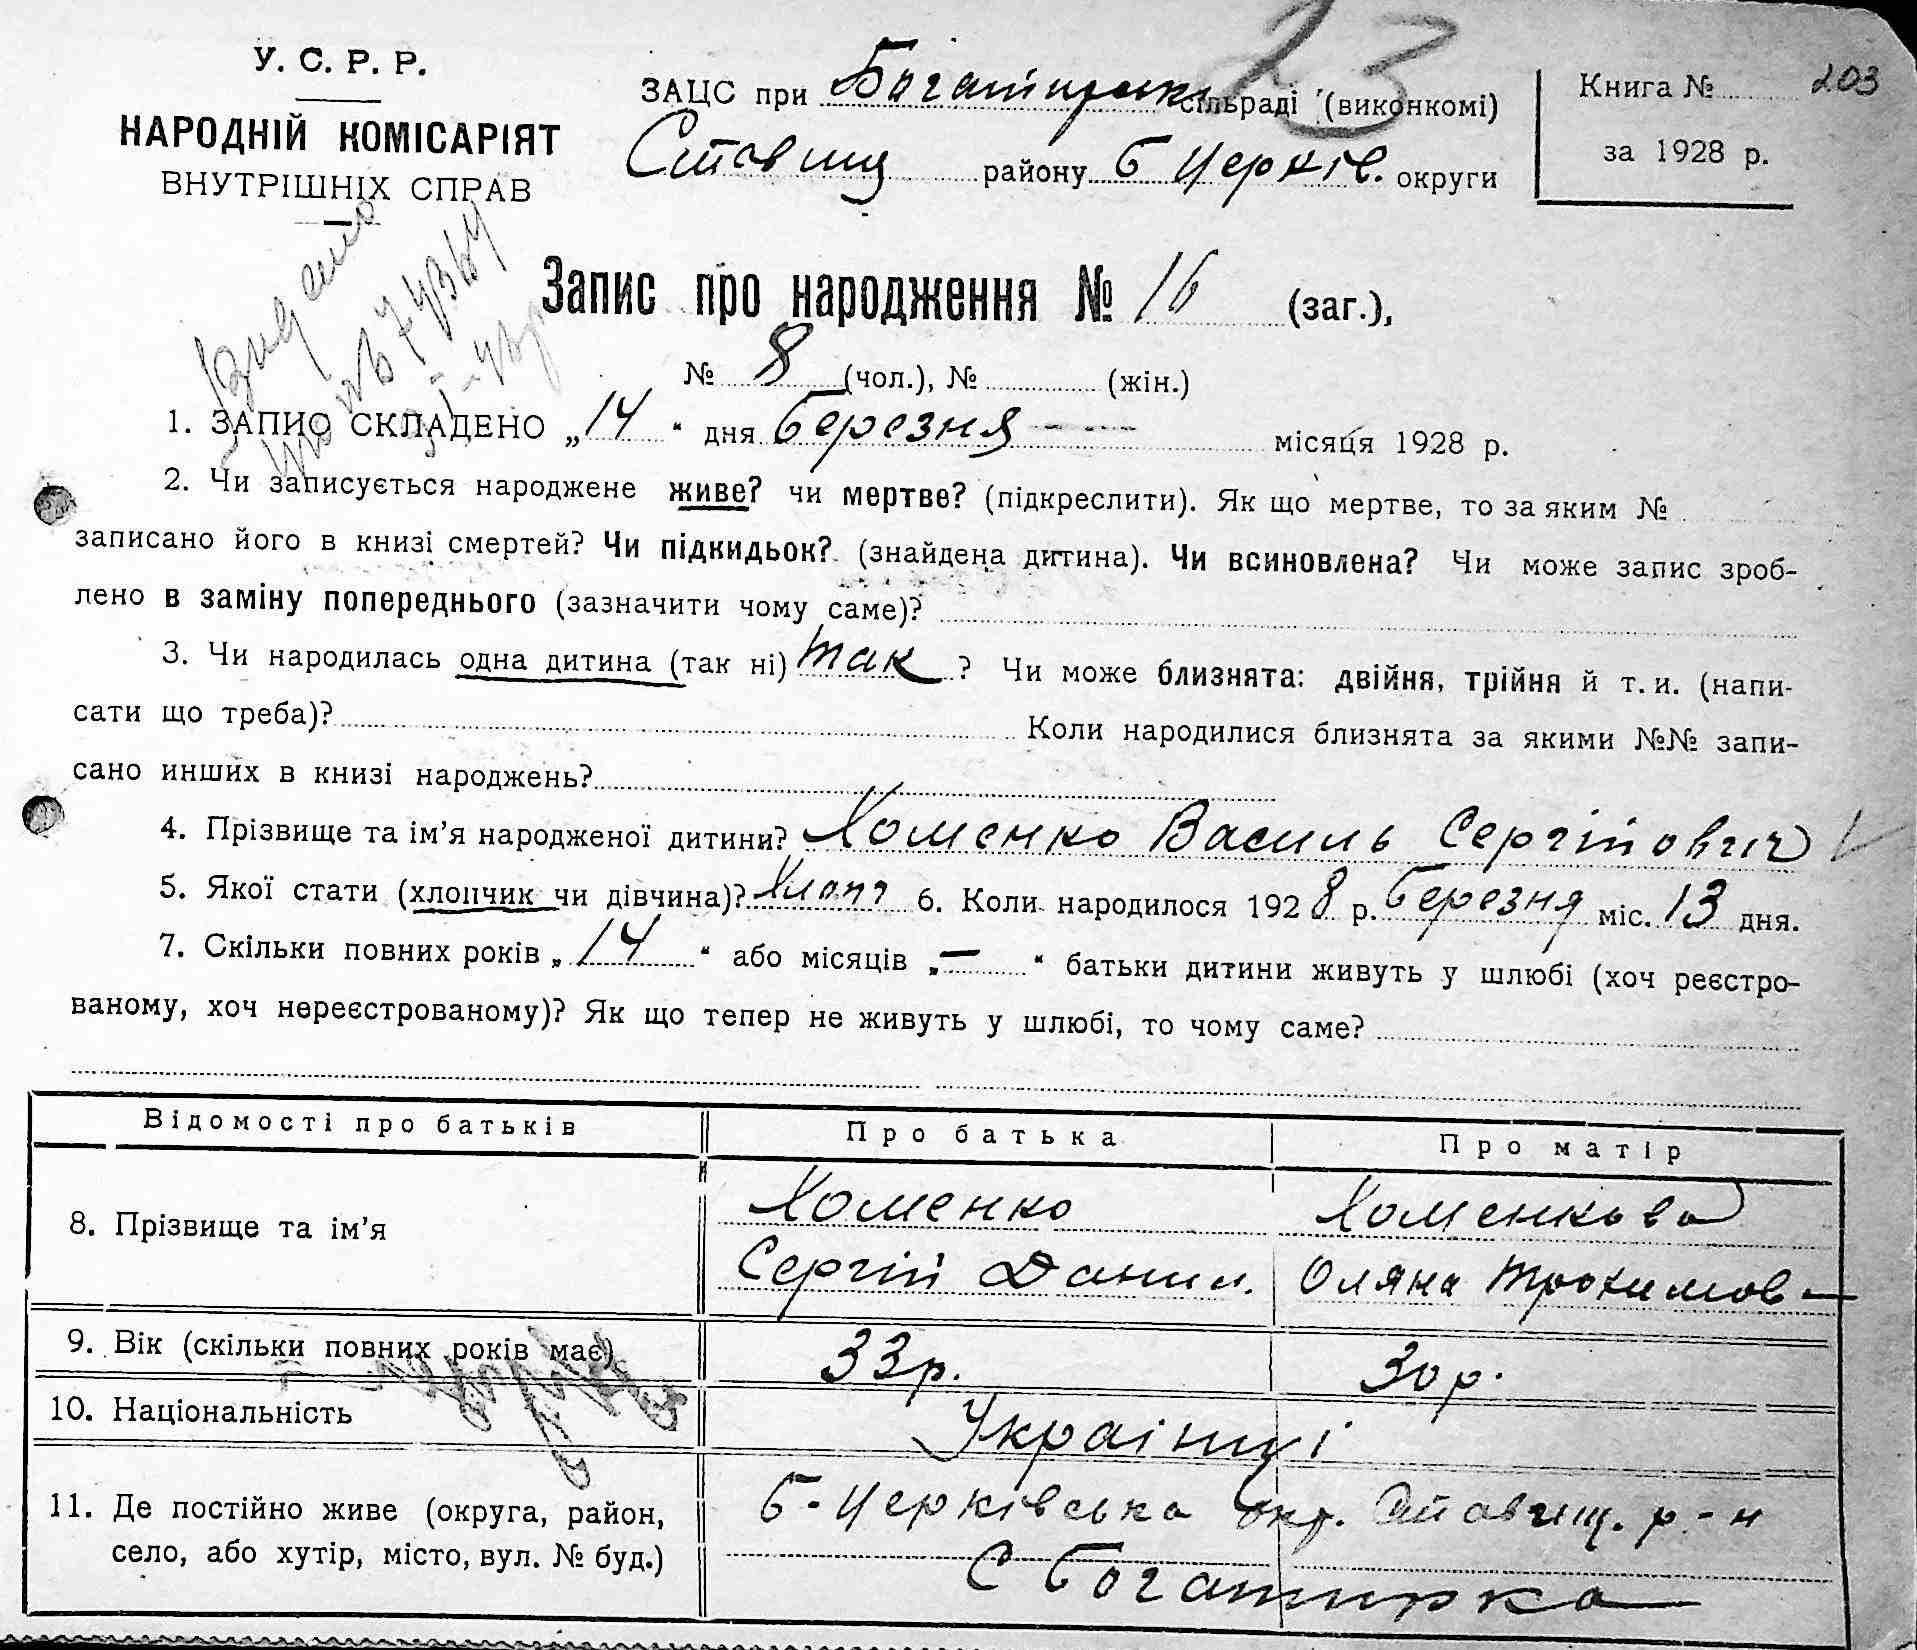 23
У. С. Р. Р.
НАРОДНІЙ КОМІСАРІЯТ
ВНУТРІШНІХ СПРАВ
ЗАЦС при Богатирськ сільраді (виконкомі)
Ставищ району Б Церків. округи
Книга № 203
за 1928 р.
Видано
Запис про народження № 16 (заг.),
№ 8 (чол.), № (жін.)
1. ЗАПИС СКЛАДЕНО „14“ дня Березня місяця 1928 р.
2. Чи записується народжене живе? чи мертве? (підкреслити). Як що мертве, то за яким №
записано його в книзі смертей? Чи підкидьок? (знайдена дитина). Чи всиновлена? Чи може запис зроб-
лено в заміну попереднього (зазначити чому саме)?
3. Чи народилась одна дитина (так ні) Так ? Чи може близнята: двійня, трійня й т. и. (напи-
сати що треба)? Коли народилися близнята за якими №№ запи-
сано инших в книзі народжень?
4. Прізвище та ім’я народженої дитини? Хоменко Василь Сергійович
5. Якої стати (хлопчик чи дівчина)? Хлопч 6. Коли народилося 1928 р. Березня міс. 13 дня.
7. Скільки повних років „14“ або місяців „—“ батьки дитини живуть у шлюбі (хоч реєстро-
ваному, хоч нереєстрованому)? Як що тепер не живуть у шлюбі, то чому саме?
Відомості про батьків Про батька Про матір
8. Прізвище та ім’я Хоменко Хоменкова
Сергій Данил. Оляна Трохимов
9. Вік (скільки повних років має) 33р. 30р.
10. Національність Українці
11. Де постійно живе (округа, район, Б-Церківська окр. Ставищ. р-н
село, або хутір, місто, вул. № буд.) С Богатирка